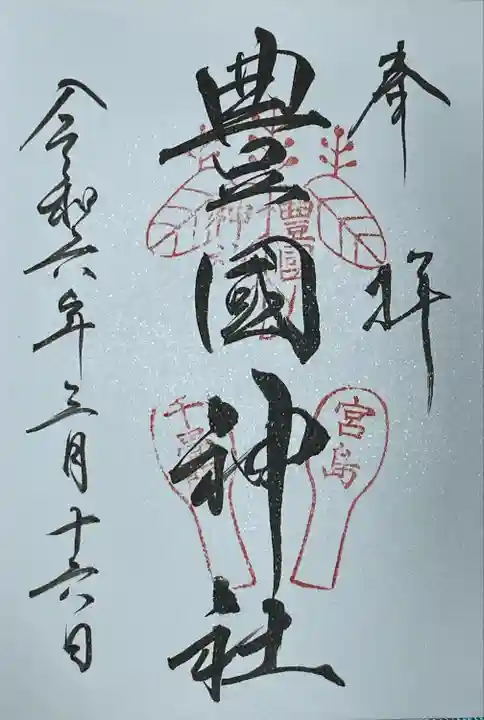 奉拝
豊國神社
豊國
神社
宮島
千畳閣
令和六年三月十六日